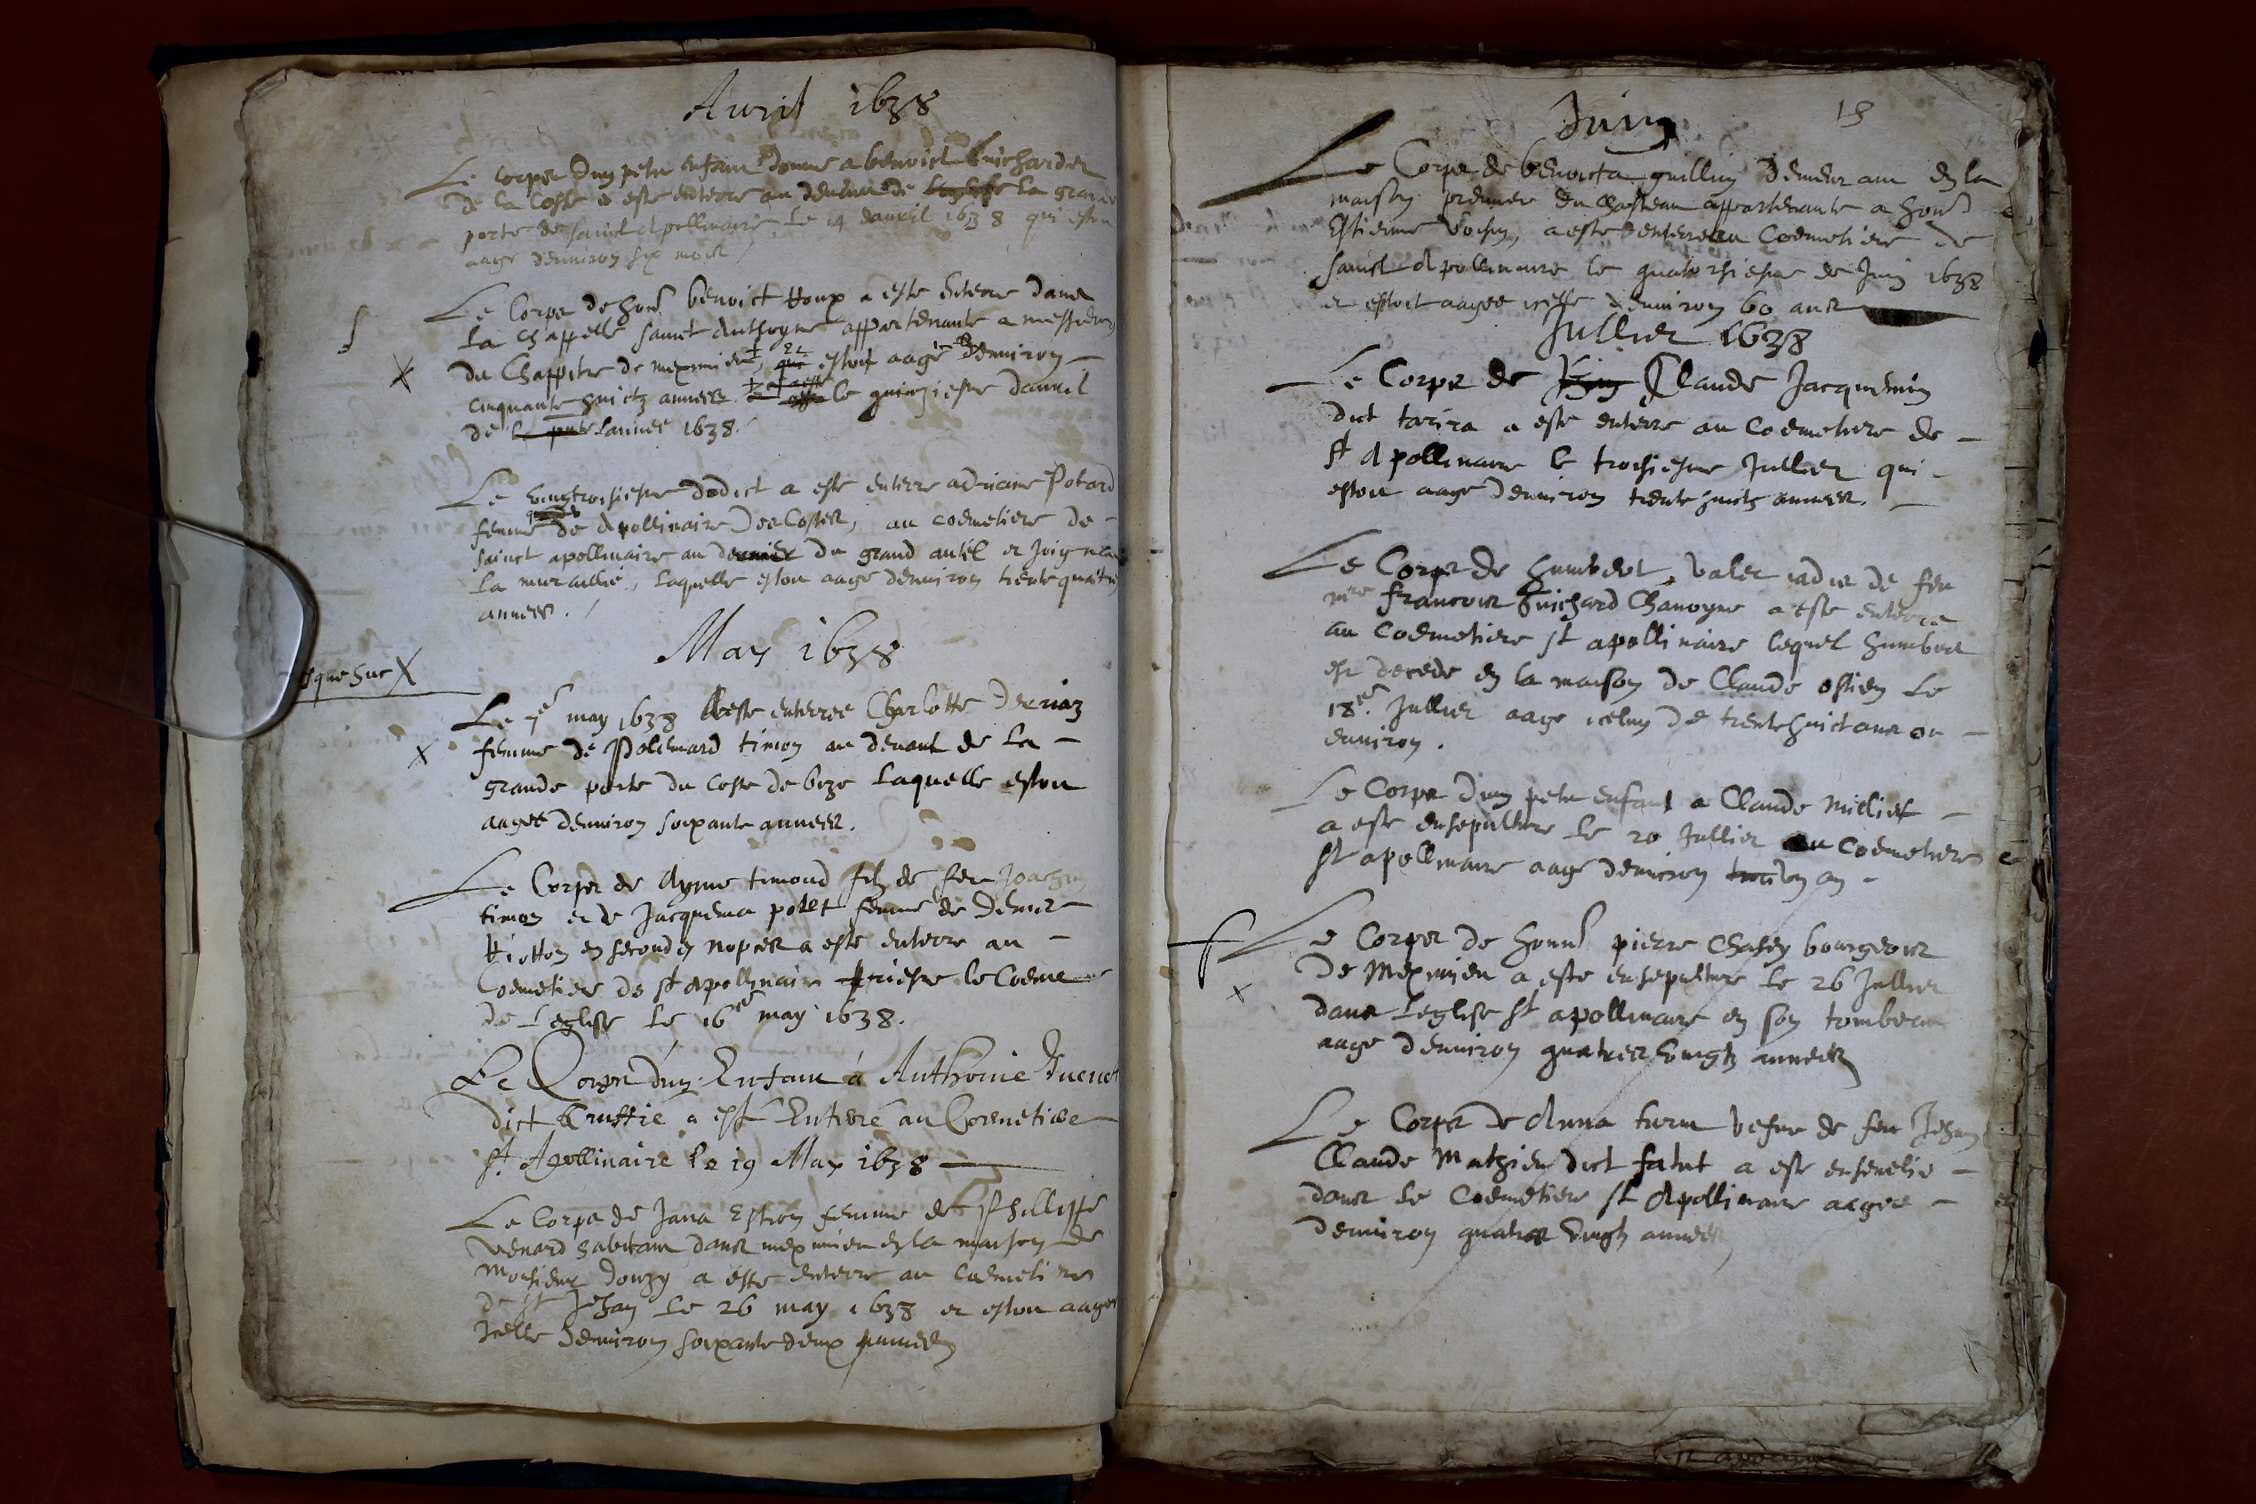 Avril 1638
Le corps dung petit enfant donne a benoict Guichardet
de la Coste a este enterre au devant de la grande
porte de sainct Apollinaire le 14 davril 1638 qui estoit
aage denviron six mois
Le Corps de hon benoict Houx a este enterre dans
la Chappelle sainct Anthoyne appartenante a messieurs
du Chappitre de meximieu et estoit aage denviron
cinquante huictz annees le quinziesme davril
de lannee 1638.
Le vingtroisiesme dodict a este enterre adriane Potard
femme de Apollinaire Des Costes, au coemetiere de
sainct apollinaire au du grand autel et joignant
la muraillie, laquelle estoit aage denviron trente quatre
annees.
May 1638
Le 7e may 1638 a este enterree Charlotte Derriaz
femme de Polemard timon au devant de la
grande porte du coste de bize laquelle estoit
aagee denviron soixante annees.
Le Corps de Ayme timond filz de feu Joachin
timon et de Jacquema polet femme de Denis
en secondes nopces a este enterre au
Coemetiere de st Apollinaire le
de Leglise le 16e may 1638.
Le Corps dung Enfant a Anthoine
dict a esté Enterré au Coemetiere
st. Apollinaire le 19 May 1638
Le Corps de Jana Estion femme de Phillippe
venard habitant dans meximieu en la maison de
Monsieur Douzy a este enterre au coemetiere
de st Jehan le 26 may 1638 et estoit aagee
Icelle denviron soixante deux annees
Juing
Le Corps de benoicta guillin demeurant en la
maison du Chasteau appartenante a hon
Estienne Voisin, a este enterree au Coemetiere de
sainct Apollinaire le quatorsiesme de Juin 1638
et estoit aagee icelle denviron 60 ans
Jullier 1638
Le Corps de Claude Jacquemin
dict tarira a este enterre au Coemetiere de
st Apollinaire le troisiesme Jullier qui
estoit aage denviron trente huictz annees.
Le Corps de humbert, valet jadis de feu
mre francois Guichard Chanoyne a este enterre
au Coemetiere st apollinaire lequel humbert
est decede en la maison de Claude ostien le
18e. Jullier aage icelluy de trente huict ans ou
environ.
Le Corps dung petit enfant a Claude Milliet
a este ensepulture le 20 Jullier au Coemetiere
st apollinaire aage denviron ung an
Le Corps de honn pierre Chasey bourgeois
de Meximieu a este ensepulture le 26 Jullier
dans Leglise st apollinaire en son tombeau
aage denviron quatres vingtz annees
Le Corps de Anna turin vefve de feu Jehan
Claude Mathieu dict fatut a este ensevelie
dans le Coemetiere st Apollinaire aagee
denviron quatres vingtz annees